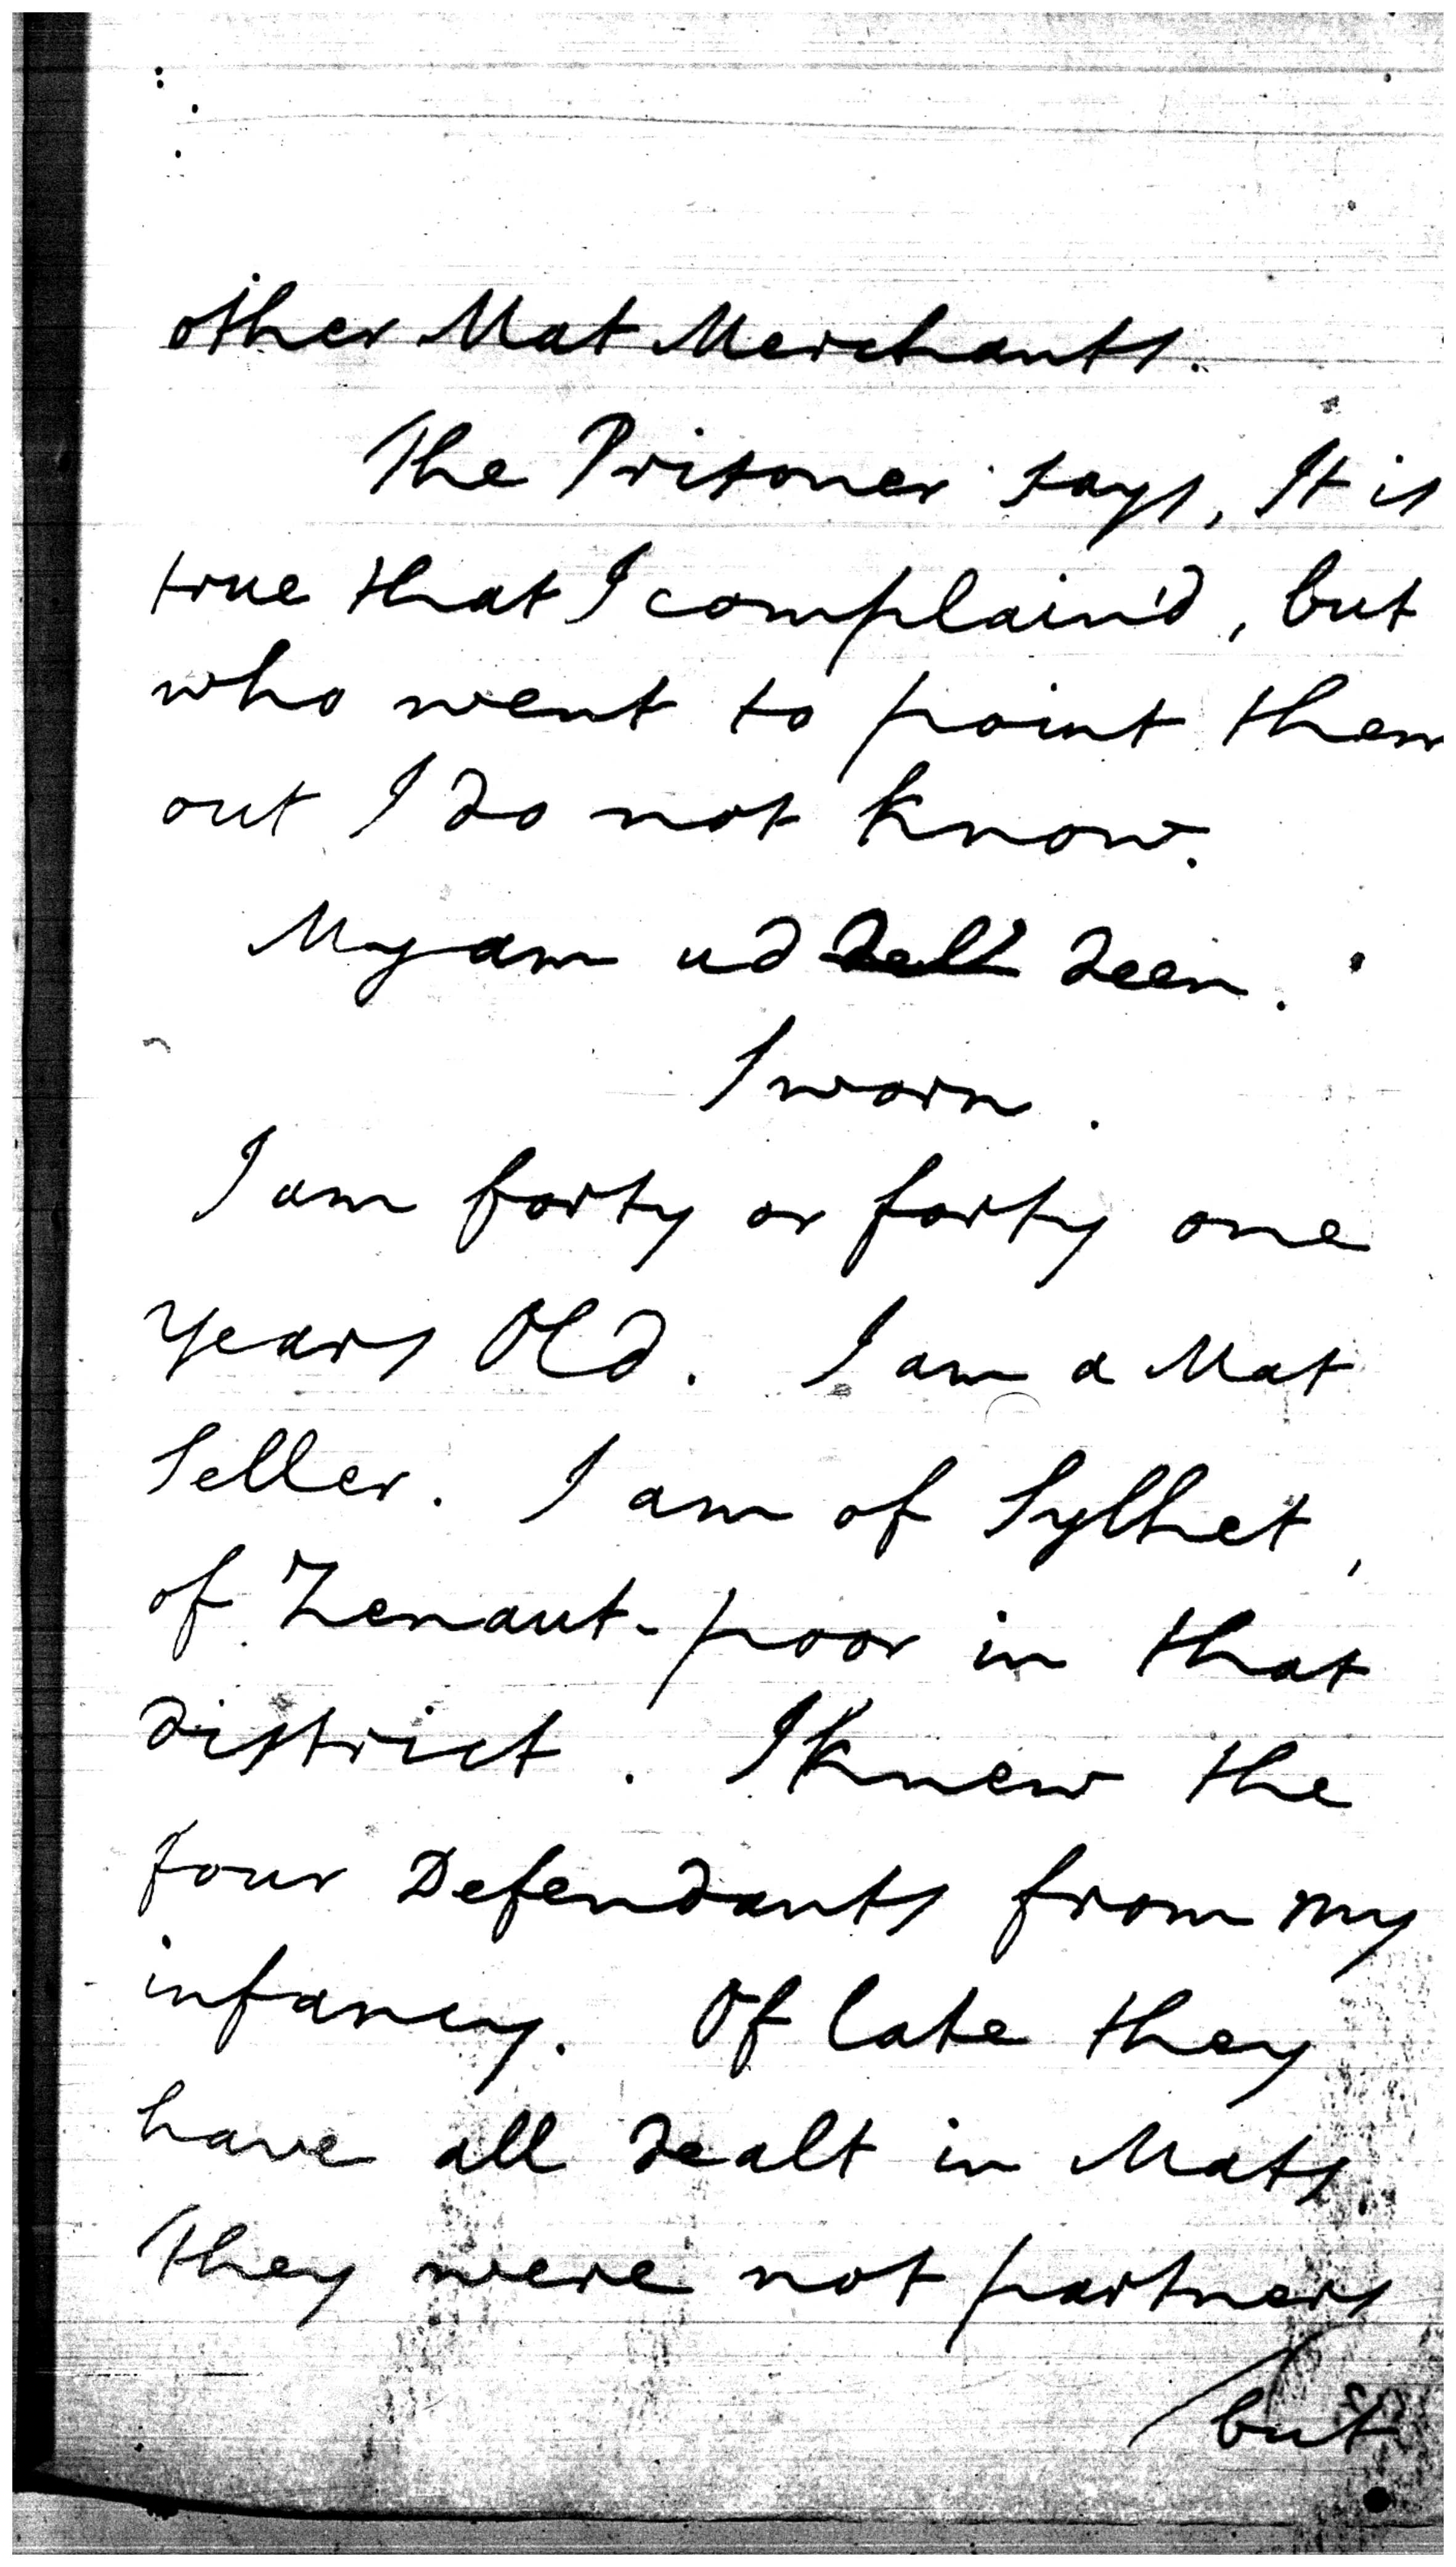 other Mat Merchants.
The Prisoner says, It is
true that I complain'd, but
who went to point them
out I do not know.
Myam ud deen.
Sworn.
I am forty or forty one
years Old. I am a Mat
Seller. I am of Sylhet,
of Zenaut-poor in that
district. I knew the
four Defendants from my
infancy. Of late they
have all dealt in Mats.
They were not partners
but